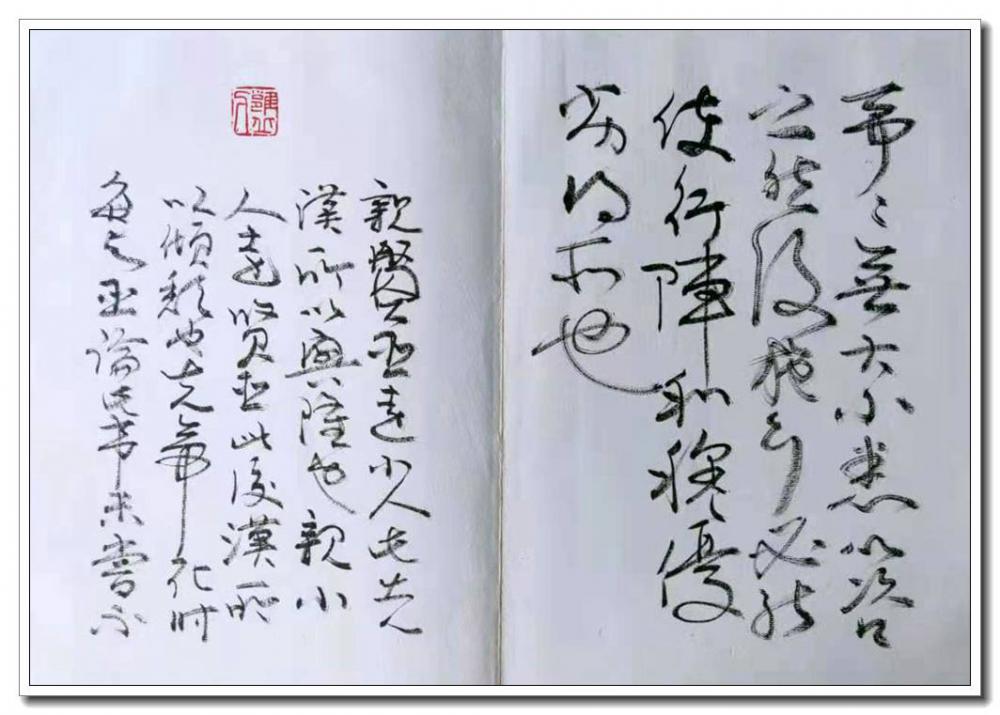 事〻無大小悉以咨
之然後施行必能
使行陣和穆優
劣得所也
親賢臣遠小人此先
漢所以興隆也親小
人遠賢臣此後漢所
以傾頹也先帝在时
每与臣論此事未嘗不